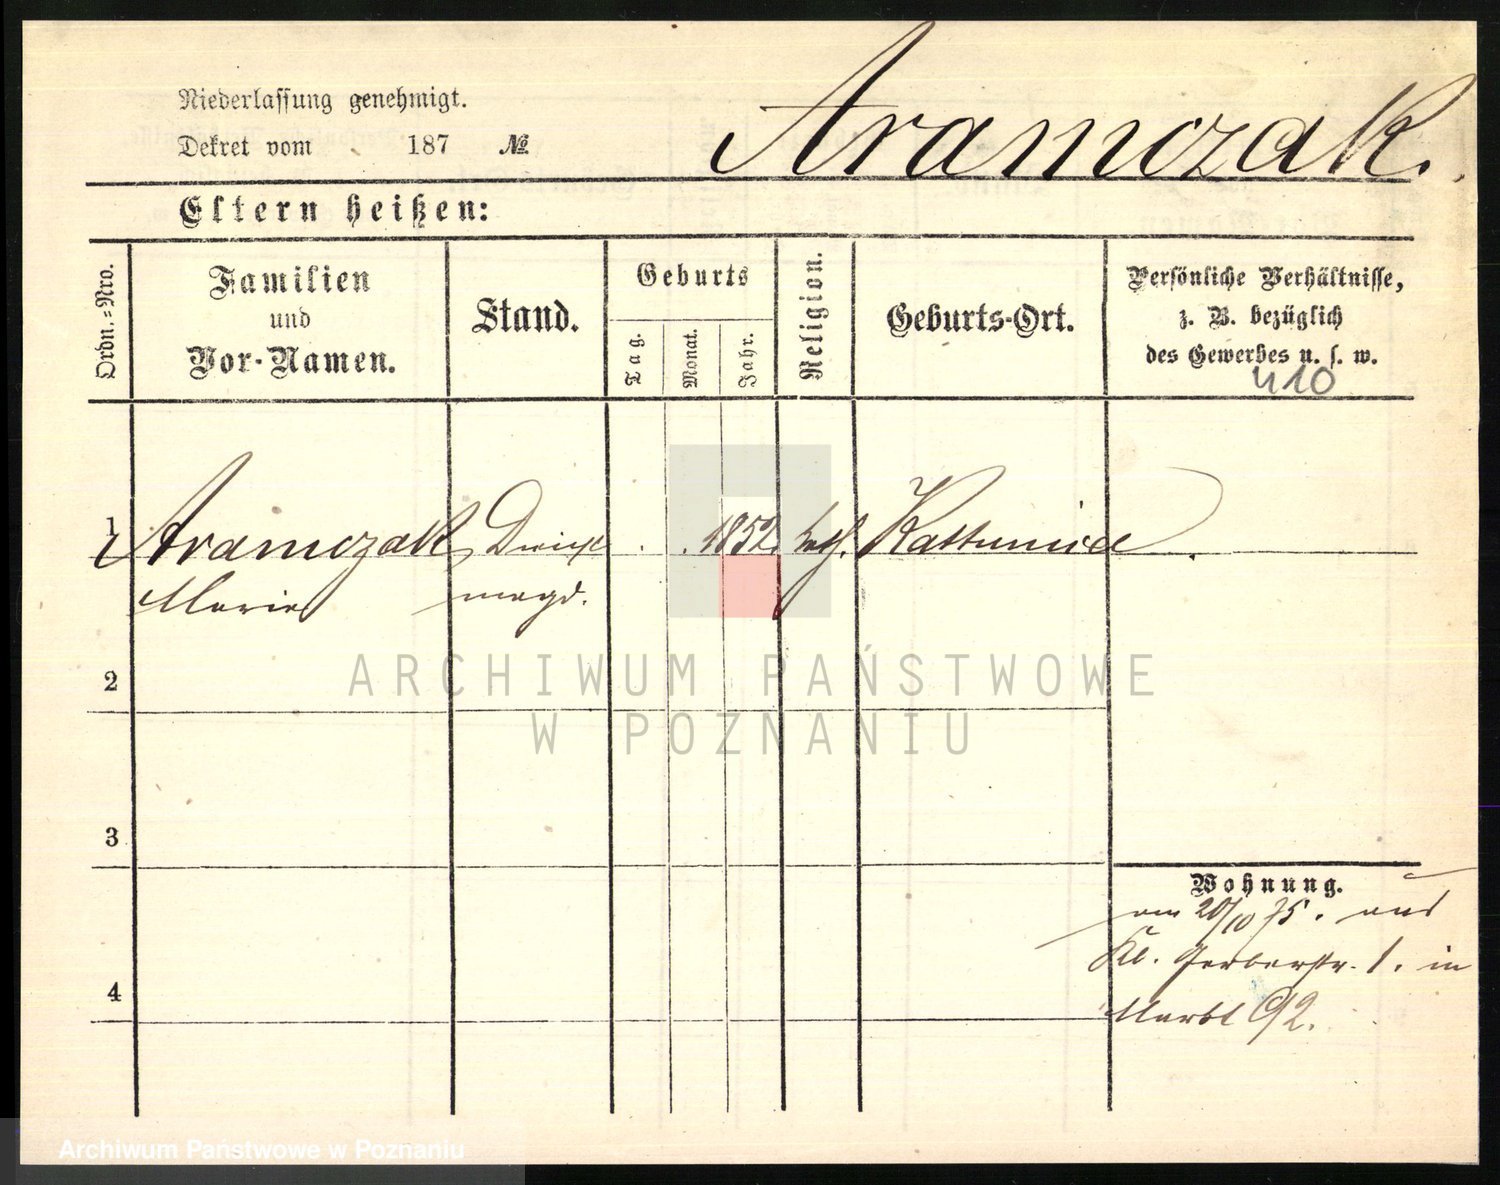 Niederlassung genehmigt.
Dekret vom 187 №
Aramczak.
Eltern heißen:
Ordn.=Nro.
Familien
und
Vor-Namen.
Stand.
Geburts
Tag.
Monat.
Jahr.
Religion.
Geburts-Ort.
Persönliche Verhältnisse,
z. B. bezüglich
des Gewerbes u. s. w.
410
1 Aramczak, Dienst 1852 kath.
Marie magd.
2
ARCHIWUM PAŃSTWOWE
W POZNANIU
3
4
Wohnung.
am 20/10 75. aus
Kl. Gerberstr. 1. in
Markt 92.
Archiwum Państwowe w Poznaniu